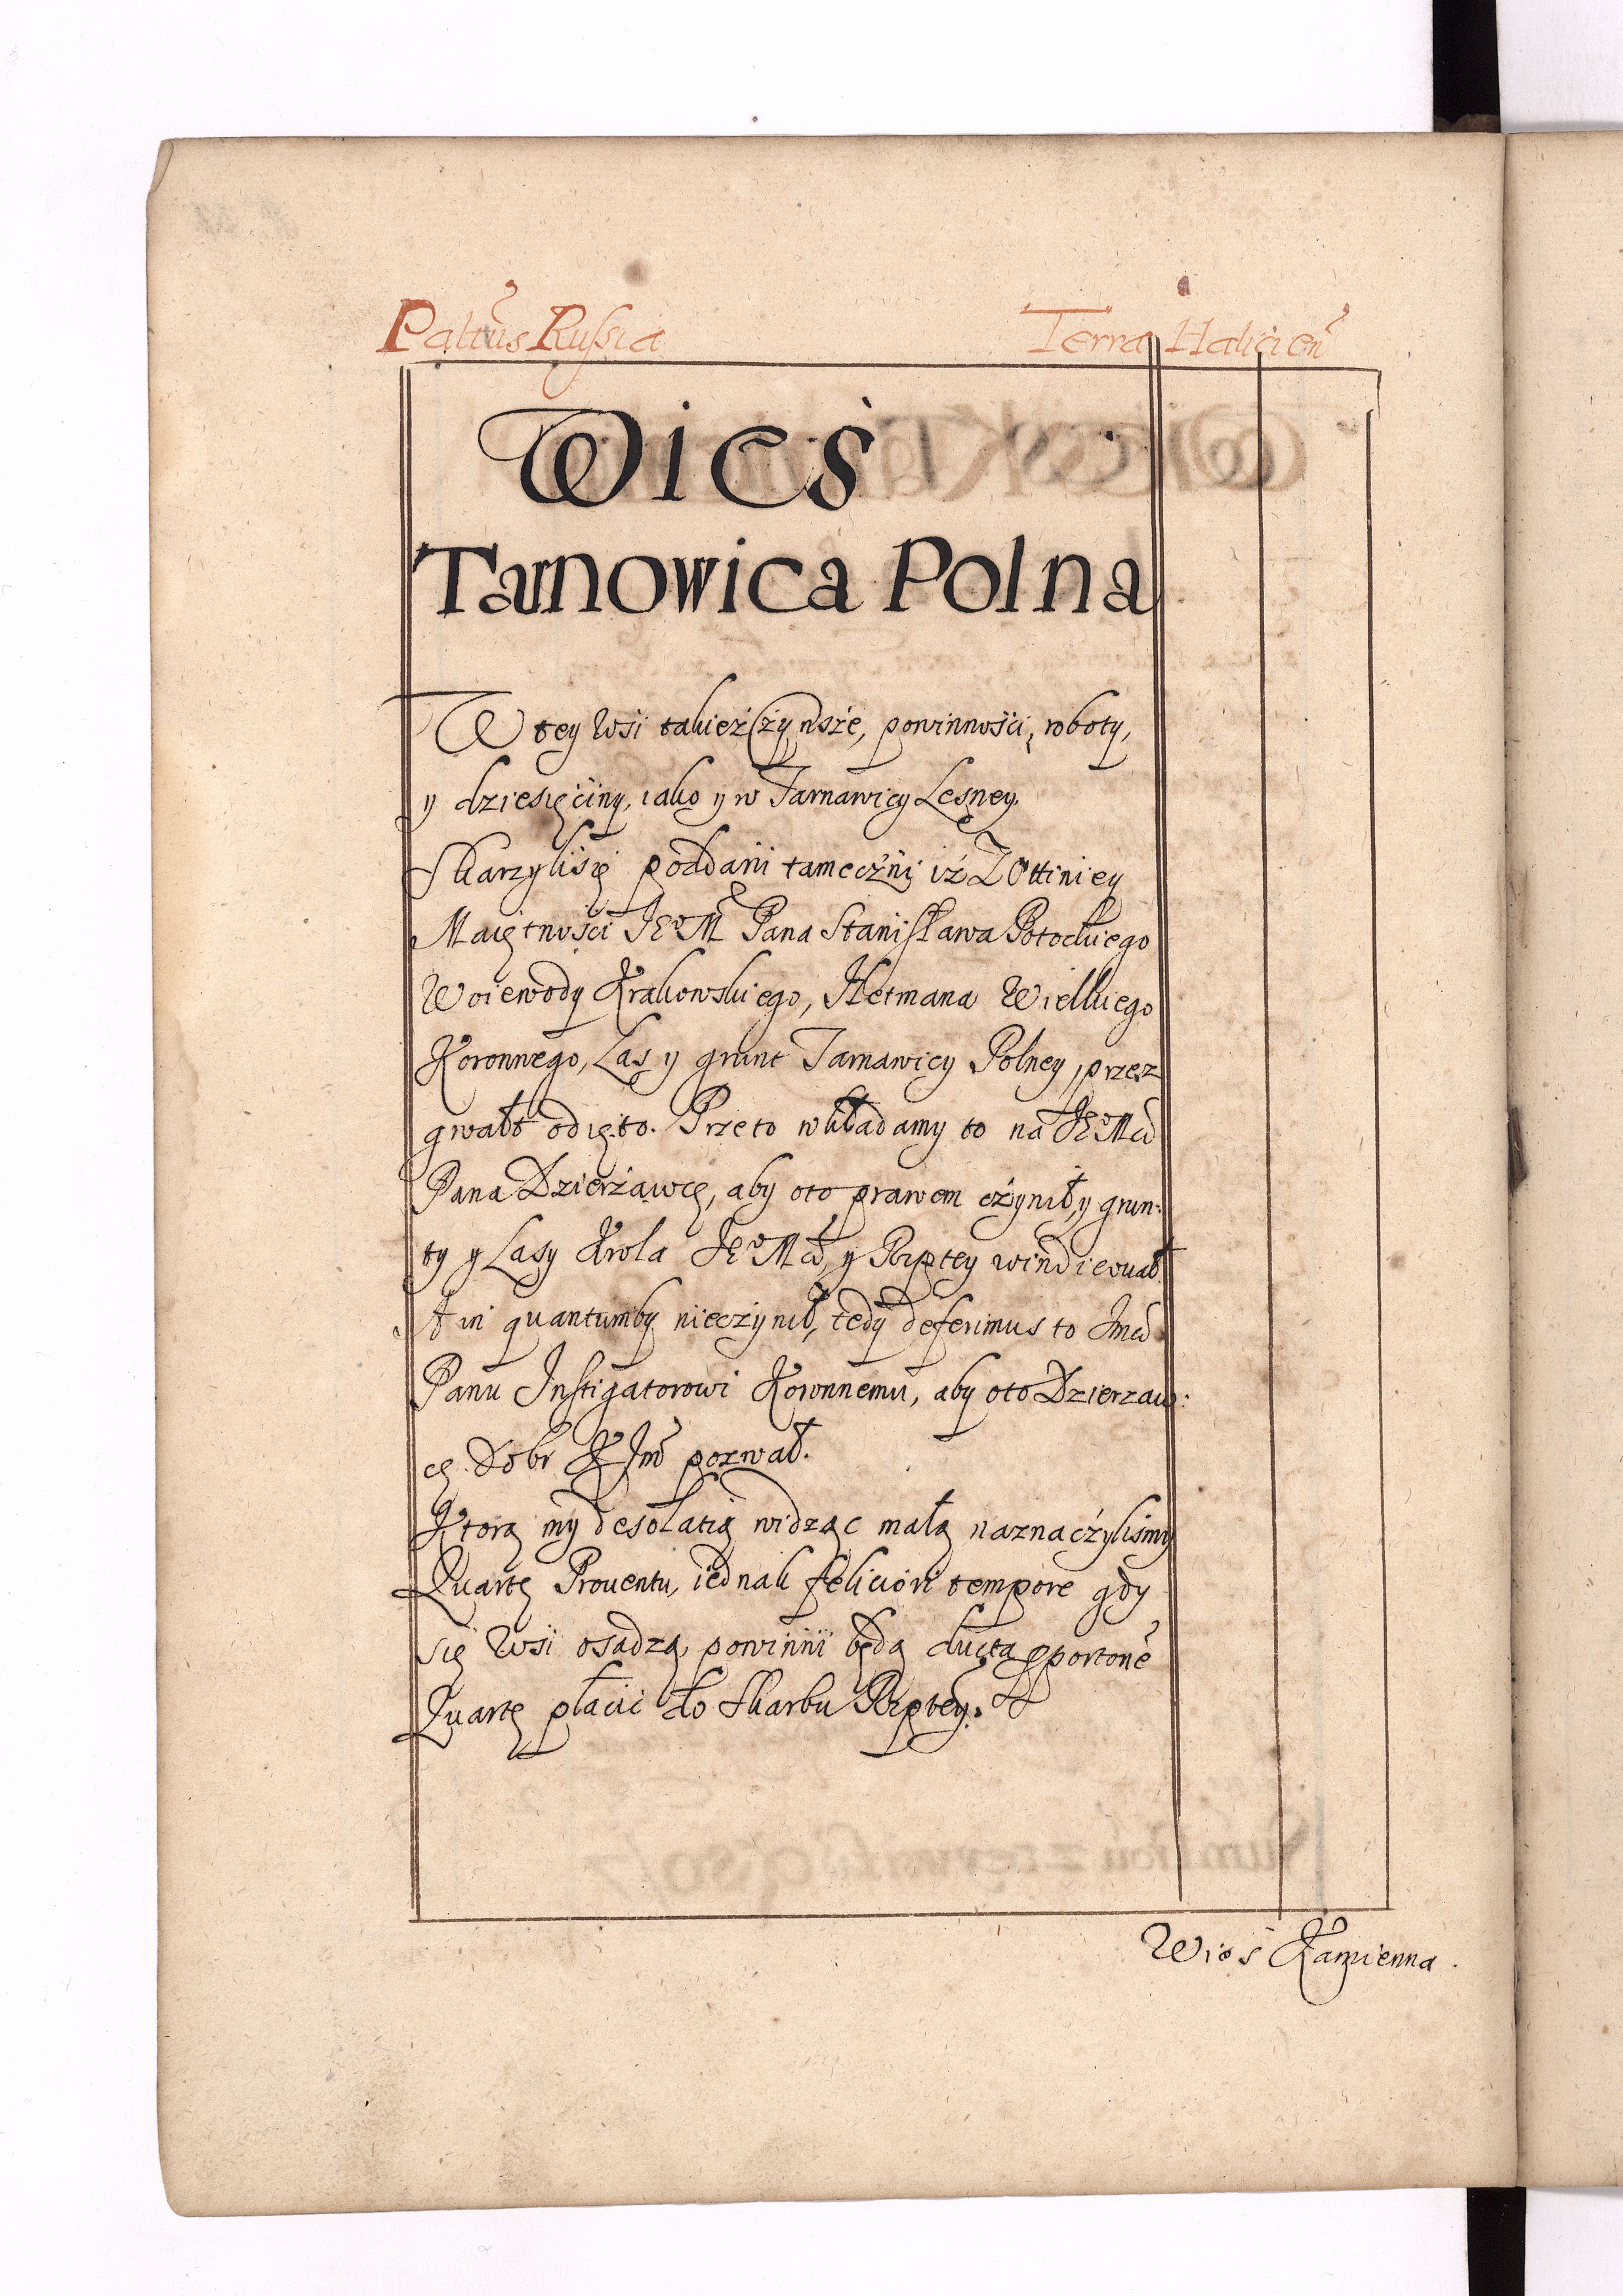 Paltus Russia Terra Halicien
Wieś
Tarnowica Polna
W tey Wsi takież Czynsze, powinnośći, roboty,
y dziesięćiny, iako y w Tarnawicy Leśney.
Skarzylisię poddani tameczni iż z Ottiniey
Maiętnośći JEoM Pana Stanisława Potockiego
Woiewody Krakowskiego, Hetmana Wielkiego
Koronnego, Las y grunt Tarnawicy Polney, przez
gwałt odięto. Przeto wkładamy to na JEoMći
Pana Dzierżawcę, aby oto prawem czynił, y grun:
ty y Lasy Krola JEoMći, y Rzptey windicował
A in quantumby nieczynił, tedy deferimus to Jmći
Panu Instigatorowi Koronnemu, aby oto Dzierzaw:
cę Dobr K Jmći pozwał.
Ktorą my desolatią widząc małą naznaczyliśmy
Quartę Prouentu, iednak feliciori tempore gdy
się Wsi osadzą, powinni będą ducta proportione
Quartę płacić do Skarbu Rzptey.
Wieś Kamienna.